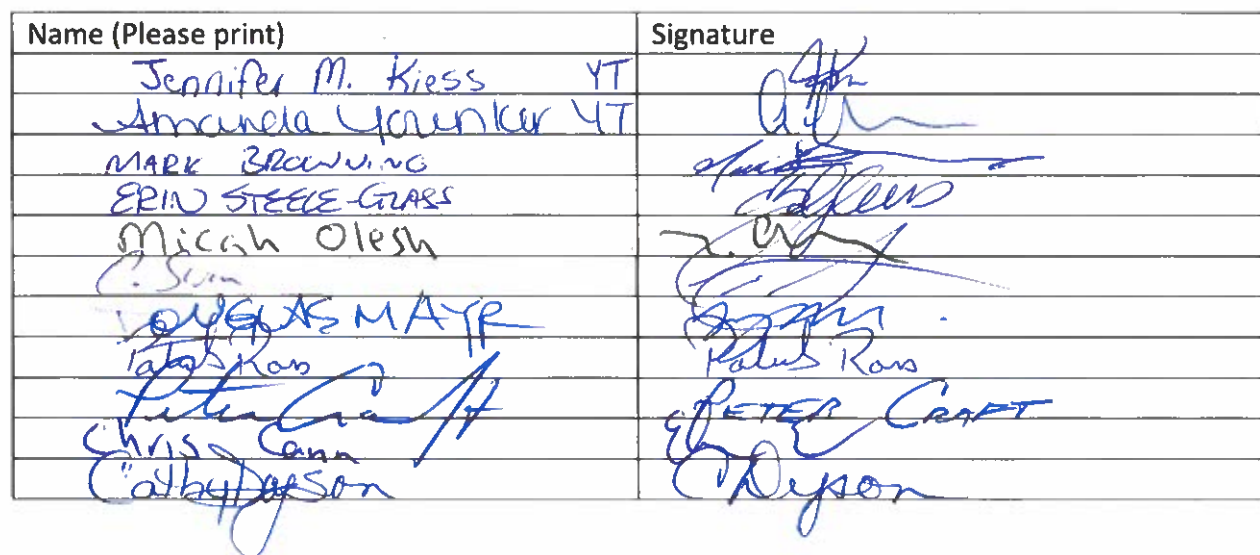 Name (Please print) Signature
Jennifer M. Kiess YT
Amanda Younker YT
MARK BROWNING
ERIN STEELE-GLASS
Micah Olesh
C.
DOUGLAS MAYR
Ross Ross
Peter Craft PETER CRAFT
Chris Cann
Cathy Dyson C Dyson